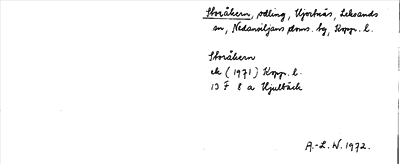 Storåkern, odling, Hjortnäs, Leksands
sn, Nedansiljans doms. hg, Kopp. l.
Storåkern
ek (1971) Kopp. l.
13 F 8 a Hjulbäck
A.-L. W. 1972.